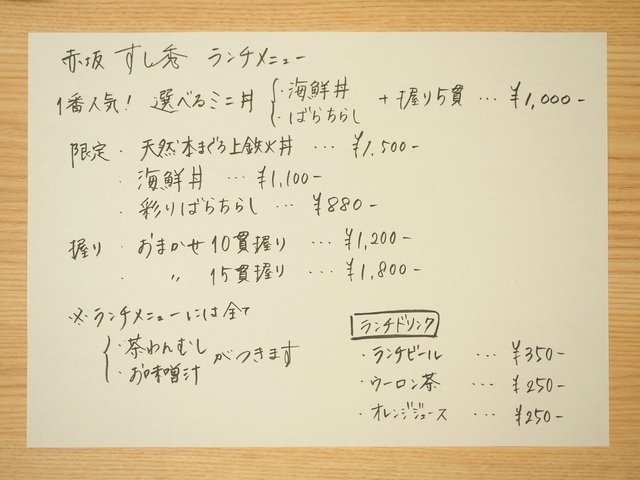 赤坂 すし秀 ランチメニュー
1番人気! 選べるミニ丼 { ・海鮮丼 ・ばらちらし + 握り5貫 … ¥1,000-
限定 ・ 天然本まぐろ上鉄火丼 … ¥1,500-
・ 海鮮丼 … ¥1,100-
・ 彩りばらちらし … ¥880-
握り ・ おまかせ 10貫握り … ¥1,200-
・ 〃 15貫握り … ¥1,800-
※ランチメニューには全て
{ ・茶わんむし ・お味噌汁 がつきます
ランチドリンク
・ランチビール … ¥350-
・ウーロン茶 … ¥250-
・オレンジジュース … ¥250-